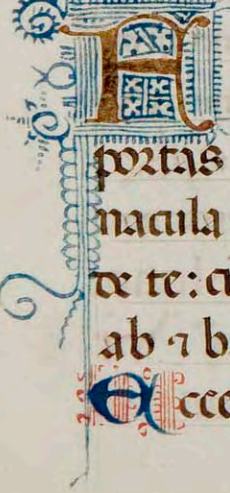 F
portas
nacula
de te: ci
ab ⁊ b
Ecce